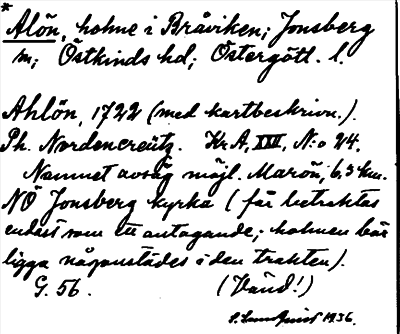 * Alön, holme i Bråviken; Jonsberg
sn; Östkinds hd; Östergötl. l.
Ahlön, 1722 (med kartbeskrivn.).
Ph. Nordencreütz. Kr A, XIII, N:o 24.
Namnet avsåg möjl. Marön, 6,3 km.
NÖ Jonsberg kyrka (får betraktas
endast som ett antagande; holmen bör
ligga någonstädes i den trakten).
G. 56. (Vänd!)
S. Lundquist 1936.